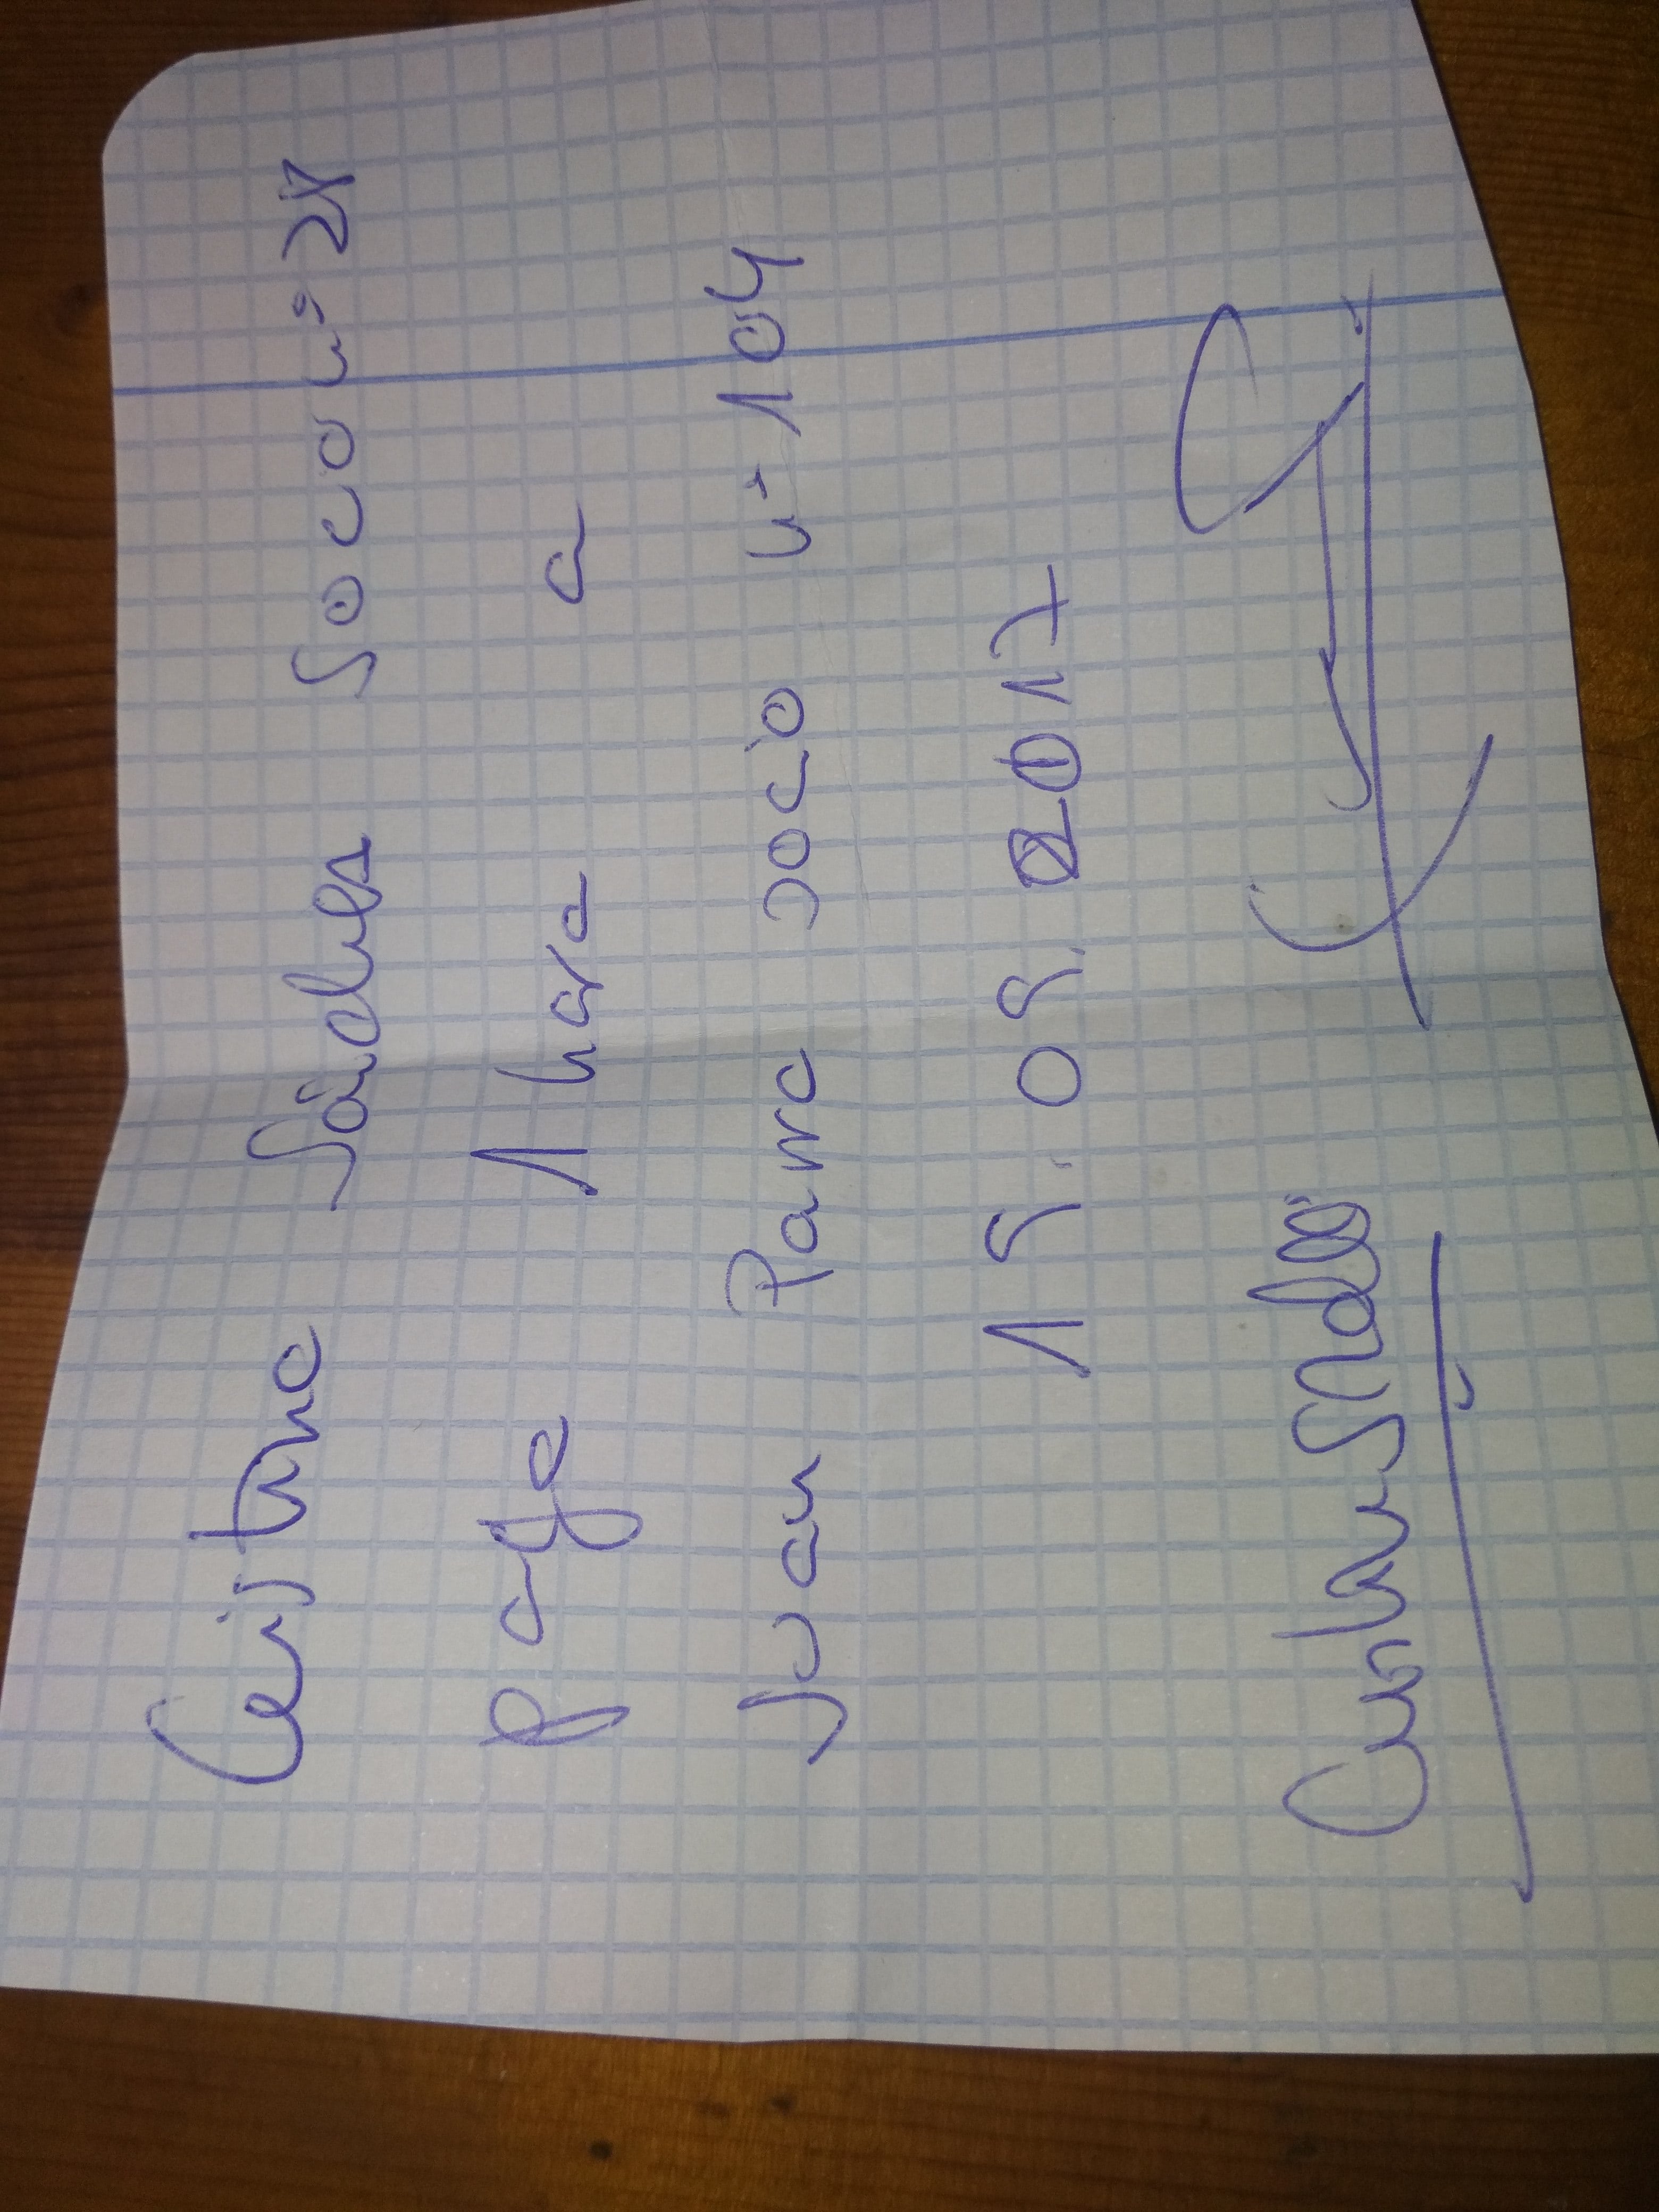 Cristina Sánchez Socia nº 28
paga 1 hora a
Juan Parra socio nº 104
19.09.2017